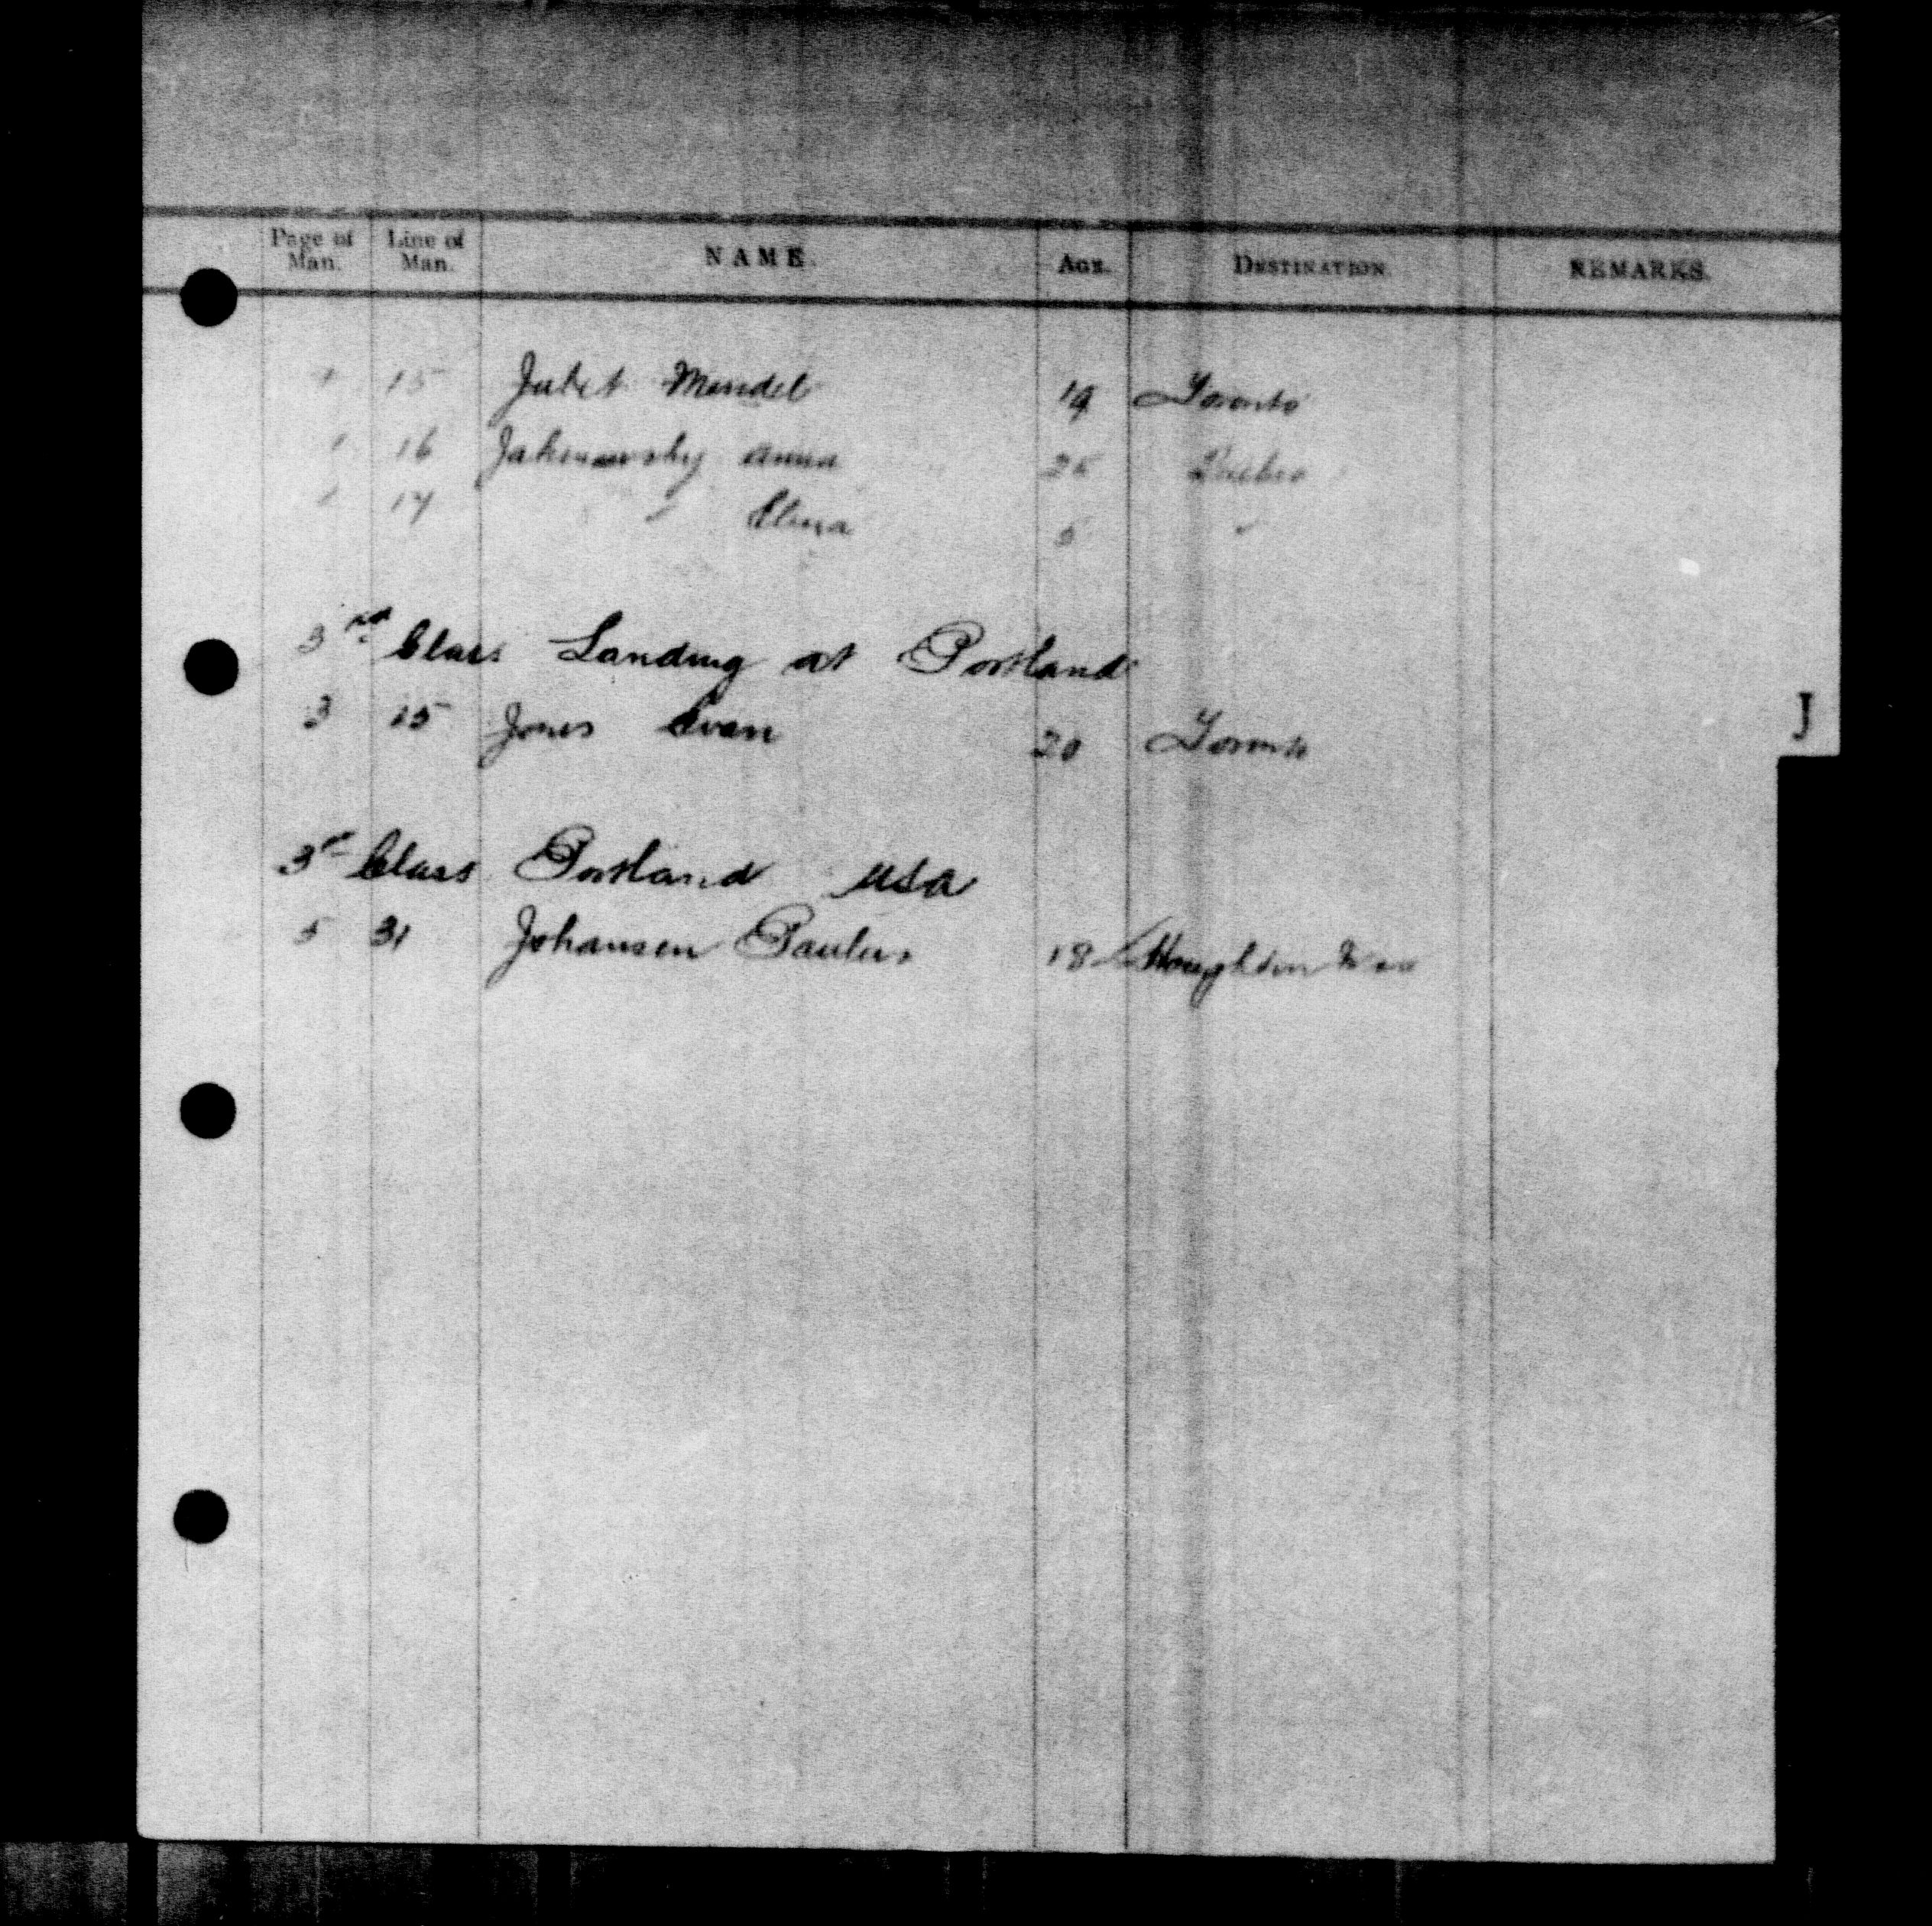 Page of Man. Line of Man. NAME. AGE. DESTINATION. REMARKS.
15 Mendel 19 Toronto
16 Anna 25 Quebec
17 " 5 "
3rd Class Landing at Portland
3 25 Jones Evan 20 Toronto
J
3rd Class Portland USA
5 31 Johansen Paulus 18 Houghton